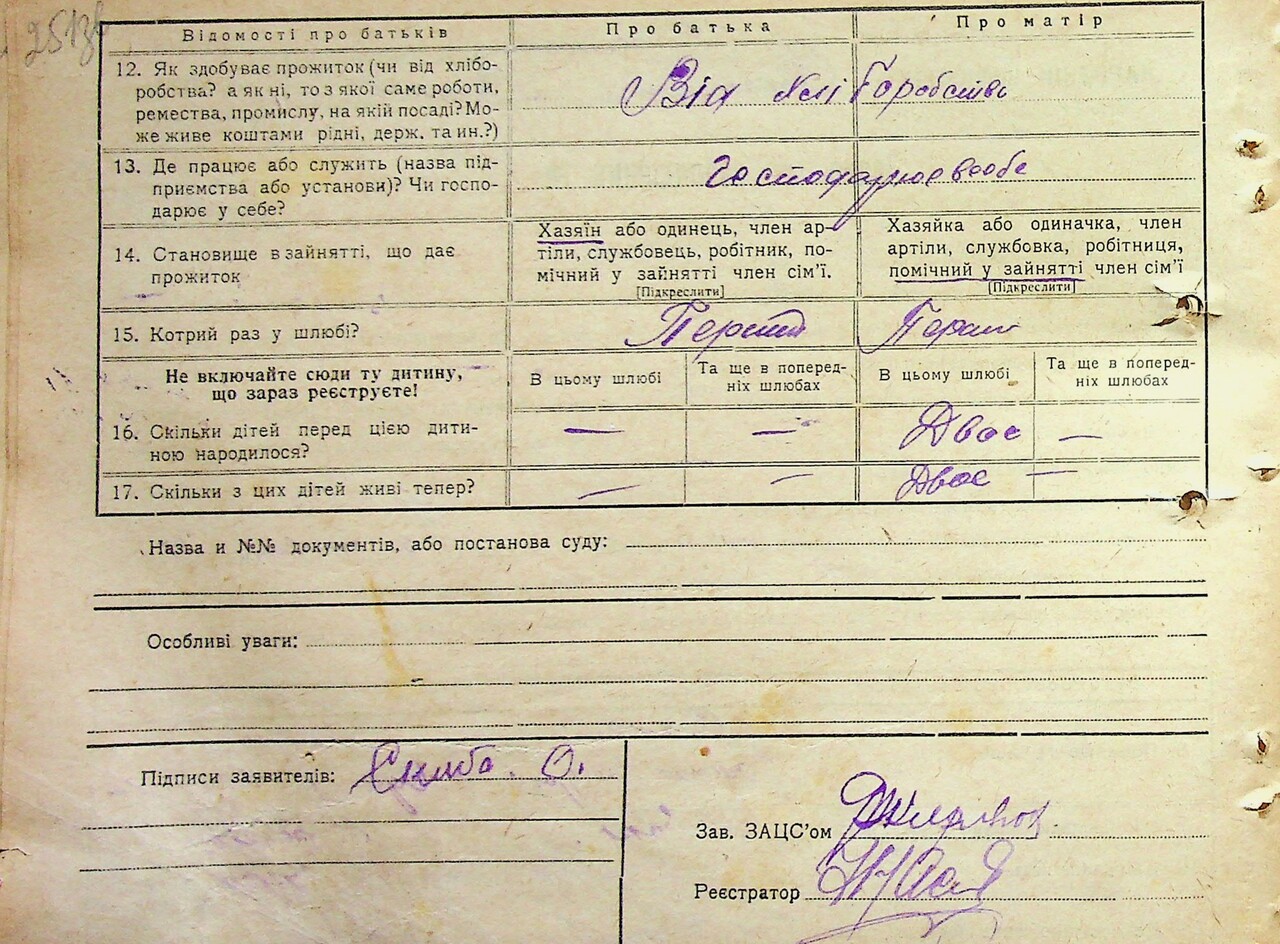 Відомості про батьків
Про батька
Про матір
12. Як здобуває прожиток (чи від хлібо-
робства? а як ні, то з якої саме роботи,
ремества, промислу, на якій посаді? Мо-
же живе коштами рідні, держ. та ин.?)
Від хлі боробства
13. Де працює або служить (назва під-
приємства або установи)? Чи госпо-
дарює у себе?
Господарює в себе
14. Становище в зайнятті, що дає
прожиток
Хазяїн або одинець, член ар-
тіли, службовець, робітник, по-
мічний у зайнятті член сім’ї.
[Підкреслити]
Хазяйка або одиначка, член
артіли, службовка, робітниця,
помічний у зайнятті член сім’ї
[Підкреслити]
15. Котрий раз у шлюбі?
Перший
Перший
Не включайте сюди ту дитину,
що зараз реєструєте!
В цьому шлюбі
Та ще в поперед-
ніх шлюбах
В цьому шлюбі
Та ще в поперед-
ніх шлюбах
16. Скільки дітей перед цією дити-
ною народилося?
— — Двоє —
17. Скільки з цих дітей живі тепер?
— — Двоє —
Назва и №№ документів, або постанова суду:
Особливі уваги:
Підписи заявителів: Скиба. О.
Зав. ЗАЦС’ом
Реєстратор